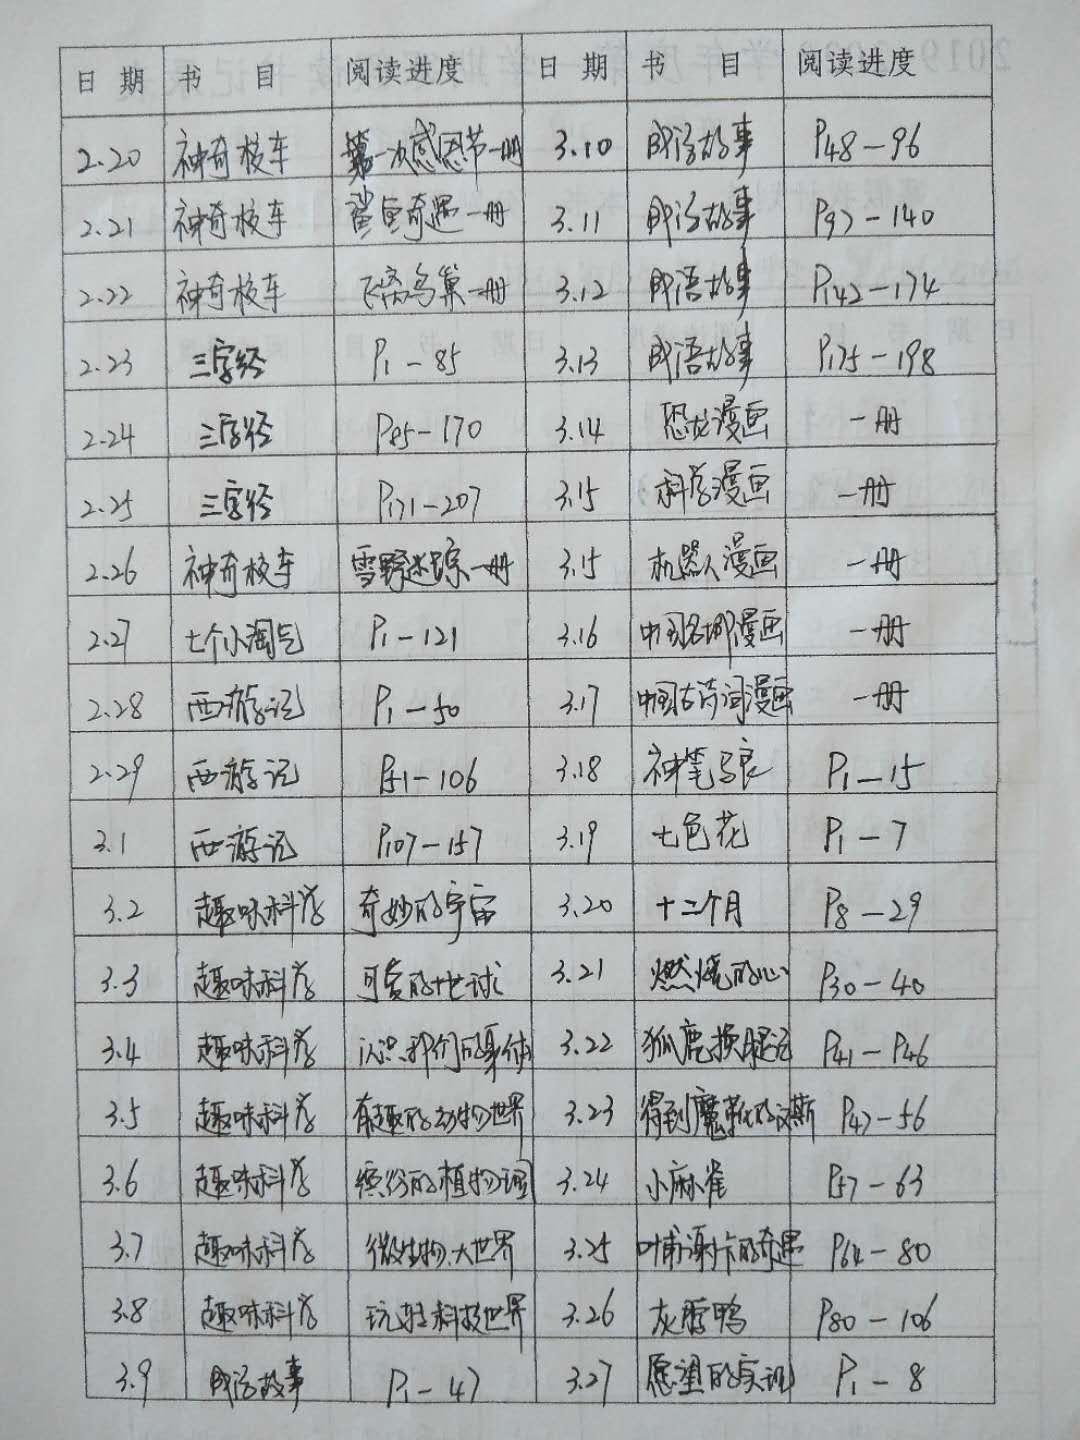 日期 书目 阅读进度 日期 书目 阅读进度
2.20 神奇校车 第一次感恩节一册 3.10 成语故事 P48-96
2.21 神奇校车 鲨鱼奇遇一册 3.11 成语故事 P97-140
2.22 神奇校车 飞离鸟巢一册 3.12 成语故事 P142-174
2.23 三字经 P1-85 3.13 成语故事 P175-198
2.24 三字经 P85-170 3.14 恐龙漫画 一册
2.25 三字经 P171-207 3.15 科学漫画 一册
2.26 神奇校车 雪野迷踪一册 3.15 机器人漫画 一册
2.27 七个小淘气 P1-121 3.16 中国名城漫画 一册
2.28 西游记 P1-50 3.17 中国古诗词漫画 一册
2.29 西游记 P51-106 3.18 神笔马良 P1-15
3.1 西游记 P107-157 3.19 七色花 P1-7
3.2 趣味科学 奇妙的宇宙 3.20 十二个月 P8-29
3.3 趣味科学 可爱的地球 3.21 燃烧的心 P30-40
3.4 趣味科学 认识我们的身体 3.22 狐鹿换腿记 P41-P46
3.5 趣味科学 有趣的动物世界 3.23 得到魔靴的汉斯 P47-56
3.6 趣味科学 缤纷的植物 3.24 小麻雀 P57-63
3.7 趣味科学 微生物大世界 3.25 叶甫谢卡的奇遇 P64-80
3.8 趣味科学 玩转科技世界 3.26 灰唇鸭 P80-106
3.9 成语故事 P1-47 3.27 愿望的实现 P1-8